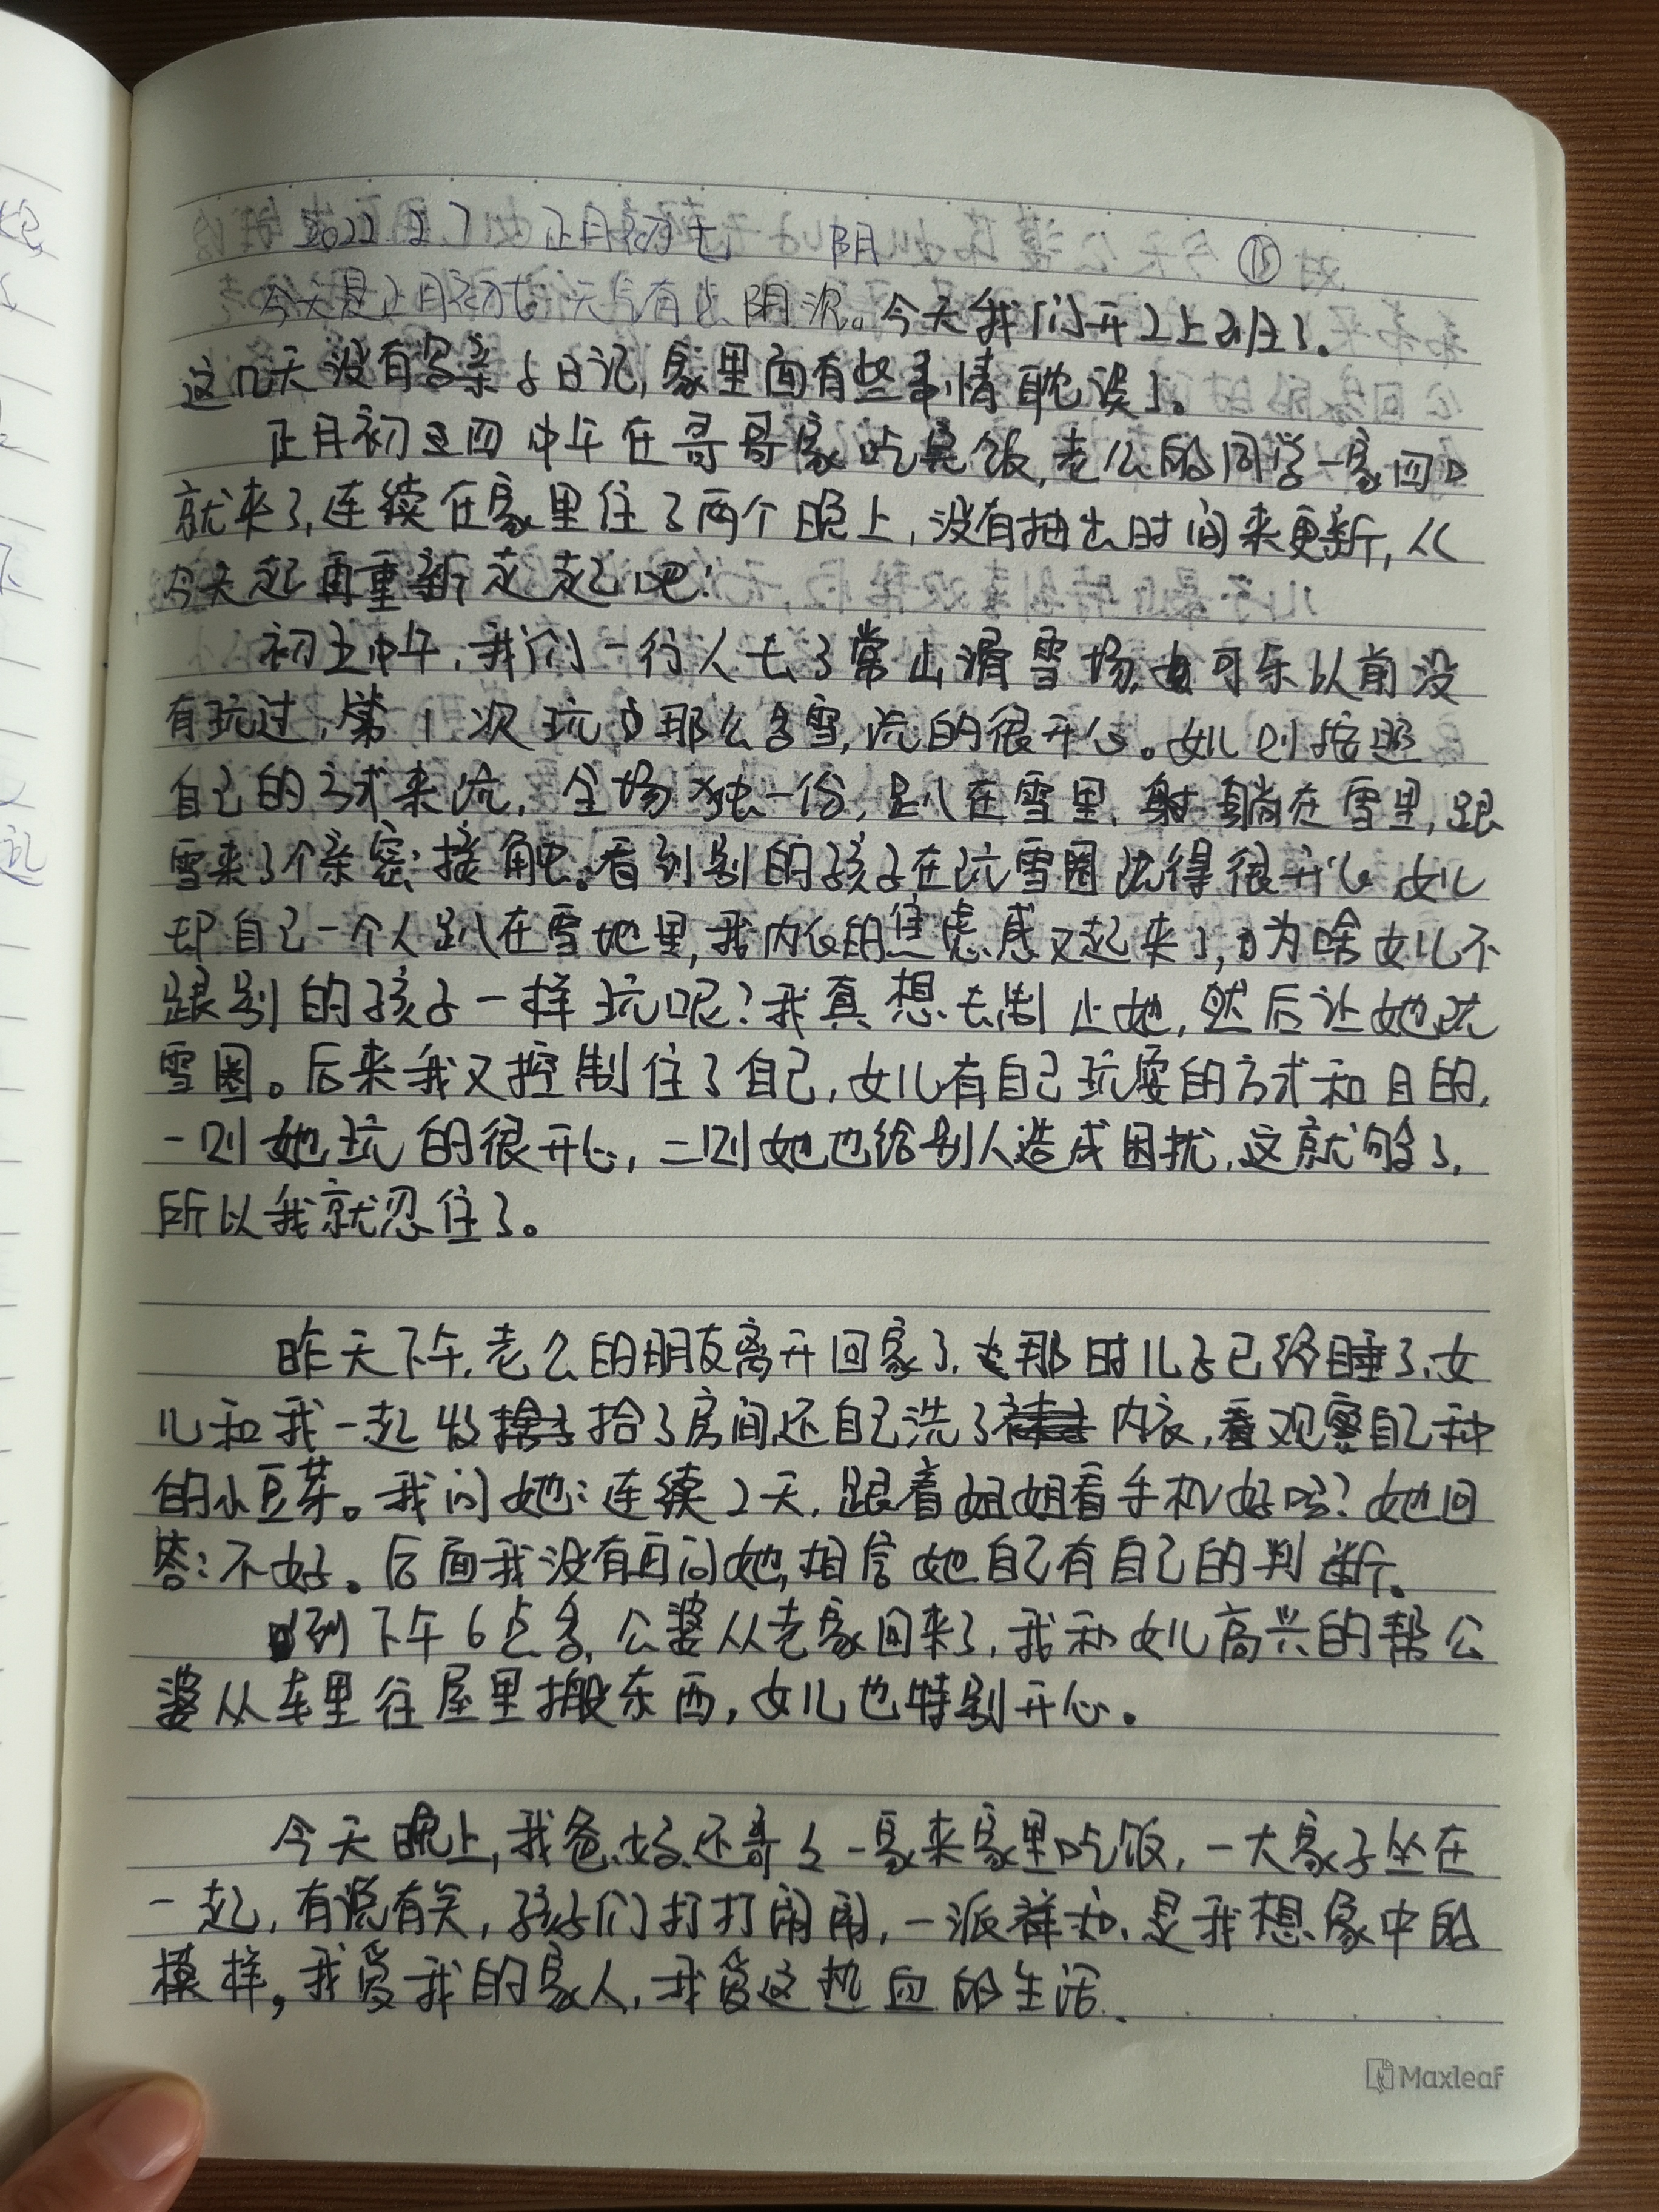 2022.2.7 正月初七 阴
今天是正月初七,天气有些阴沉。今天我们开工上班了。
这几天没有写亲子日记,家里面有些事情耽误了。
正月初四中午在哥哥家吃完饭,老公的同学一家四口
就来了,连续在家里住了两个晚上,没有抽出时间来更新,从
今天起再重新走起吧!
初五中午,我们一行人去了常山滑雪场,可乐以前没
有玩过,第1次玩那么多雪,玩的很开心。女儿则按照
自己的方式来玩,全场独一份,趴在雪里,躺在雪里,跟
雪来了个亲密接触。看到别的孩子在玩雪圈玩得很开心女儿
却自己一个人趴在雪地里,我内心的焦虑感又起来了,为啥女儿不
跟别的孩子一样玩呢?我真想去制止她,然后让她玩
雪圈。后来我又控制住了自己,女儿有自己玩耍的方式和目的,
一则她玩的很开心,二则她也给别人造成困扰,这就够了,
所以我就忍住了。
昨天下午,老公的朋友离开回家了,那时儿子已经睡了,女
儿和我一起收拾了房间,还自己洗了内衣,观察自己种
的小豆芽。我问她:连续2天,跟着姐姐看手机好吗?她回
答:不好。后面我没有再问她,相信她自己有自己的判断。
到下午6点多,公婆从老家回来了,我和女儿高兴的帮公
婆从车里往屋里搬东西,女儿也特别开心。
今天晚上,我爸、妈、还哥々一家来家里吃饭,一大家子坐在
一起,有说有笑,孩子们打打闹闹,一派祥和,是我想象中的
模样,我爱我的家人,我爱这热血的生活.
Maxleaf